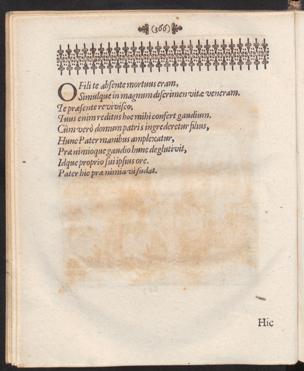 (166)
O Fili te absente mortuus eram,
Simulque in magnum discrimen vitæ veneram.
Te præsente revivisco,
Tuus enim reditus hoc mihi confert gaudium.
Cùm verò domum patris ingrederetur filius,
Hunc Pater manibus amplexatur,
Præ nimioque gaudio hunc deglutivit,
Idque proprio sui ipsius ore.
Pater hic præ nimia vi sudat.
Hic